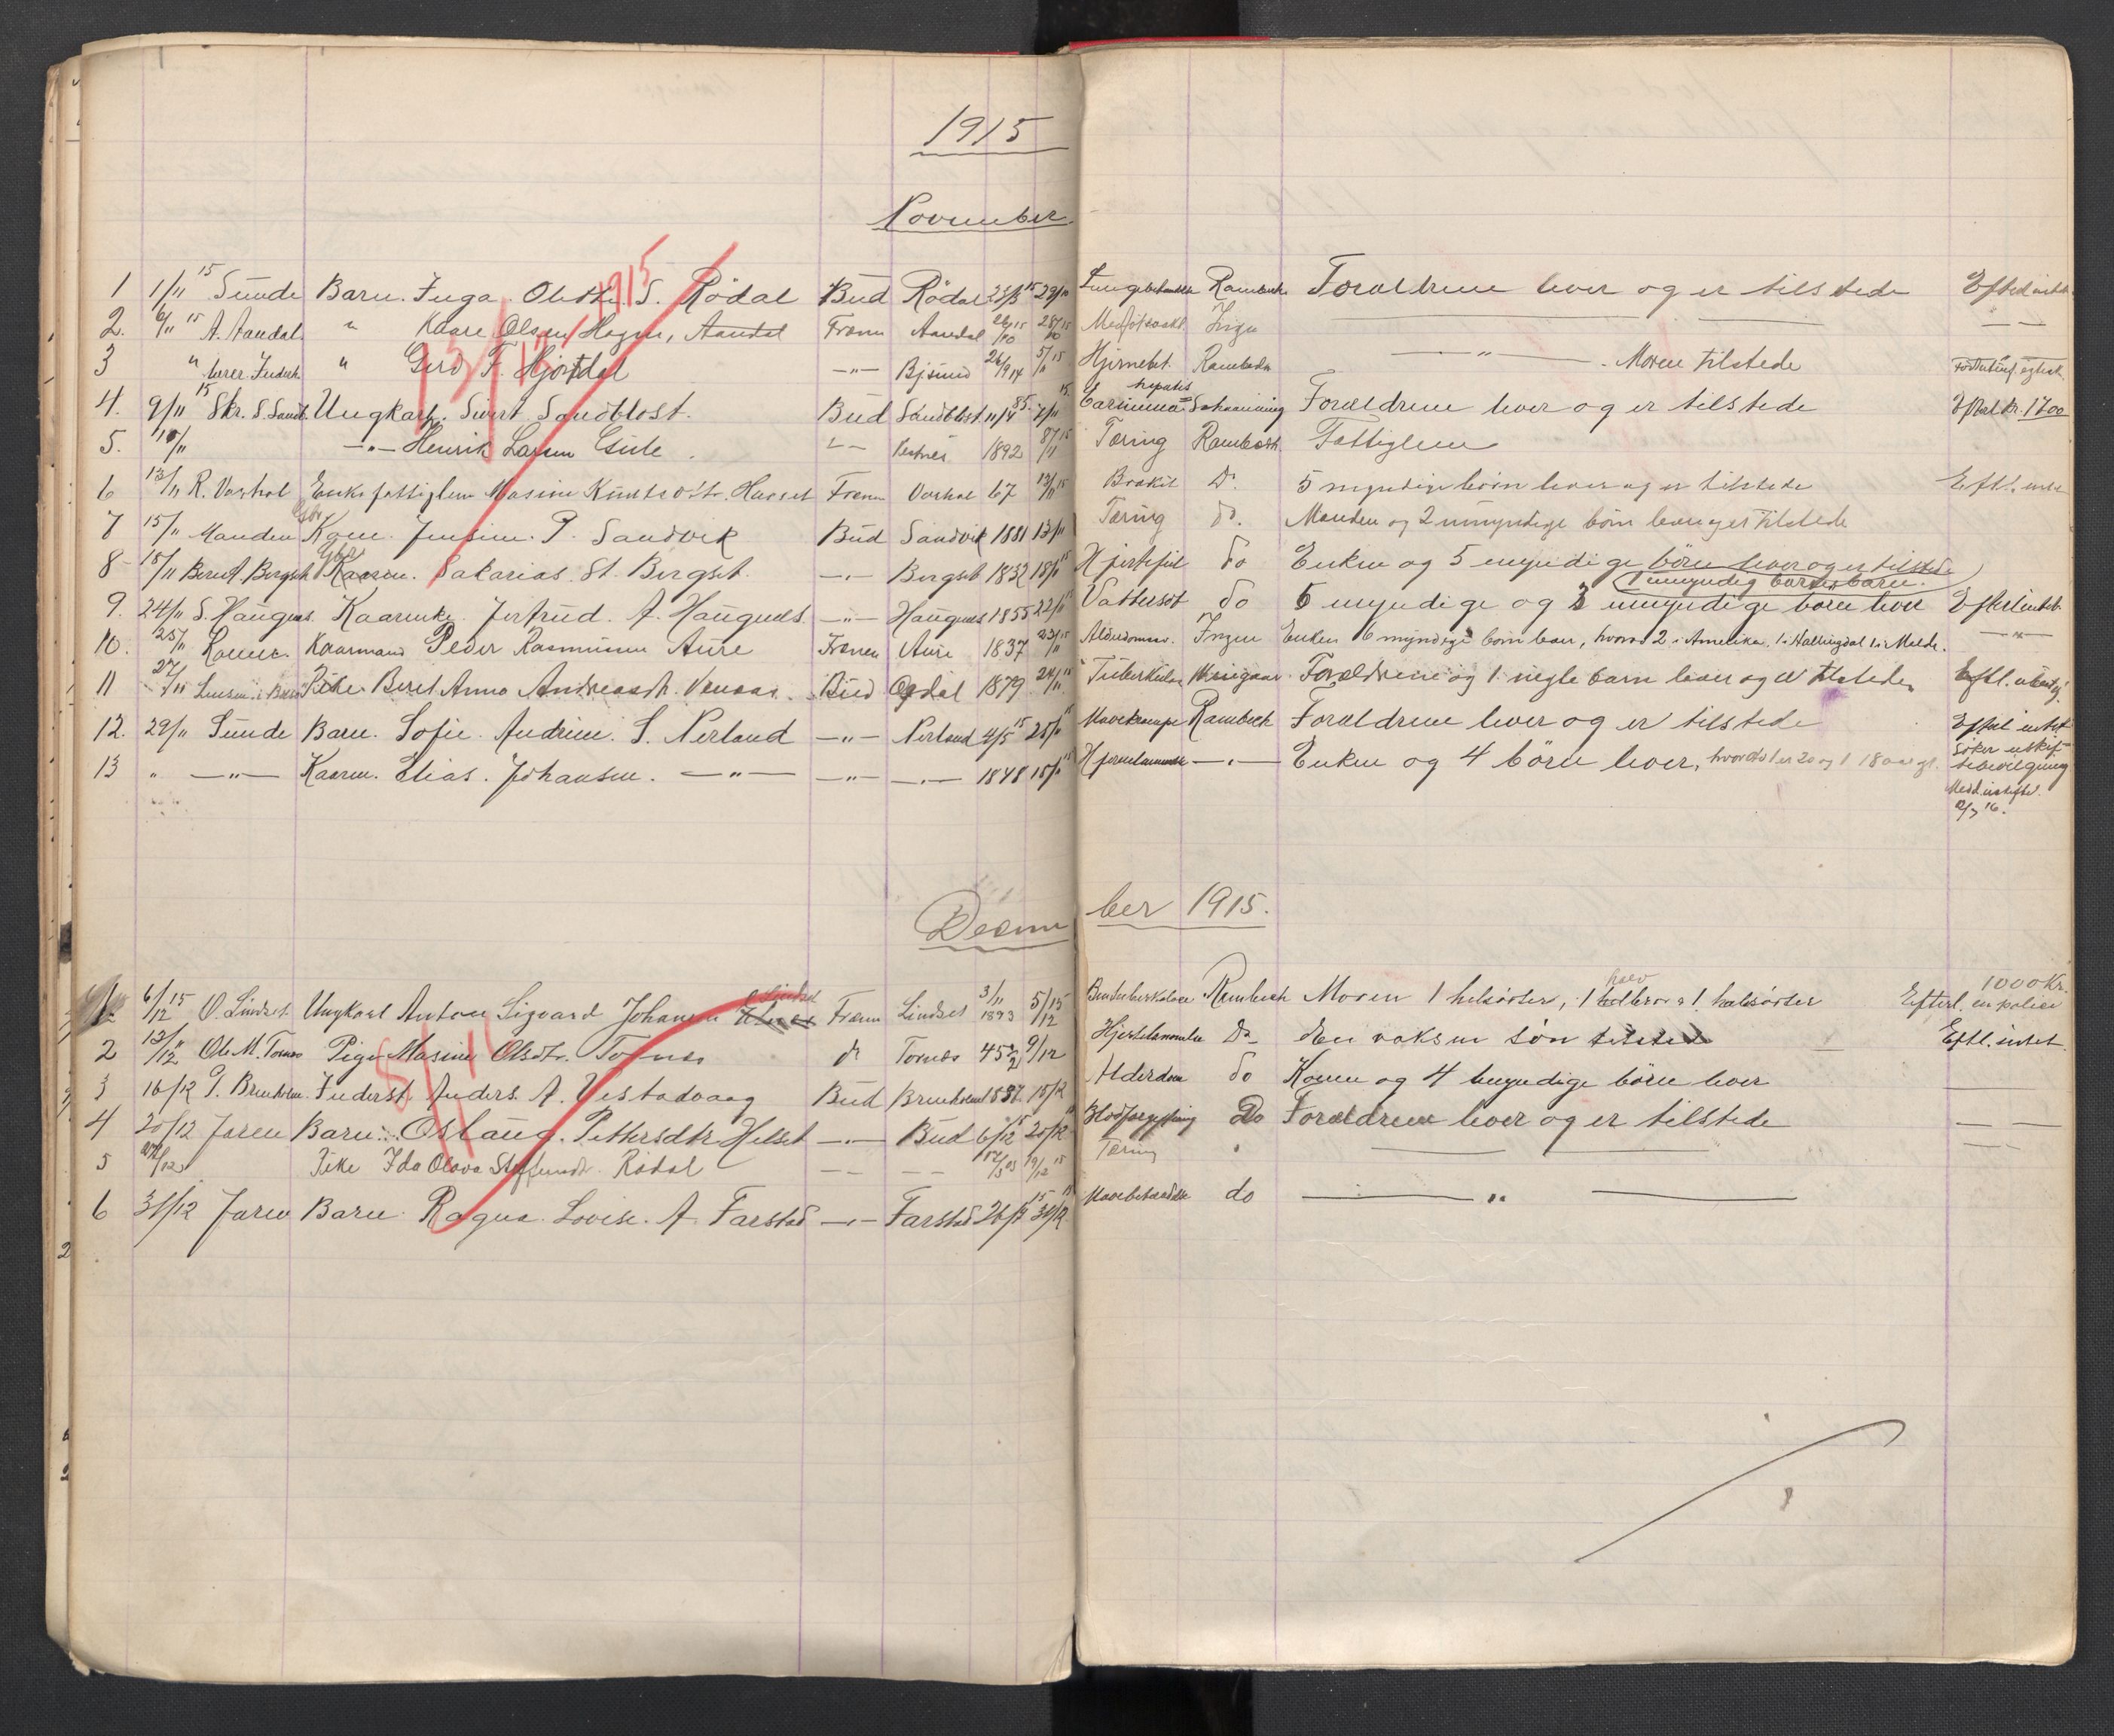 1915
November
1 1/11 15 Sunde Barn. Inga Olufine S. Rödal Bud Rödal 23/3 15 29/10 Lungebetændelse Rambech Forældrene lever og er tilstede Efterl. intet
2. 6/11 15 A. Aandal " Kaare Olsen Hagen, Aandal Fræn Aandal 26/10 15 28/10 15 Medfødt svakh. Ingen — — — —
3 " lærer Inderh. " Gerd F. Hjortdal —"— Bjsund 26/9 14 5/11 15 Hjernebet. Rambech —"— Moren tilstede
4. 9/11 15 Skr. S. Sandb. Ungkarl. Sivert Sandblost. Bud Sandblst. 11/4 85. 7/11 15. Carcinoma hepatis Schanning Forældrene lever og er tilstede Efterl. kr. 1700
5. 10/11 —"— Henrik Larsen Gule 1892 8/11 15 Tæring Rambech. Fattiglem
6 13/11 R. Varhol Enke fattiglem Masine Knutsdtr. Harset Frænen Varhol 67 13/11 15 Brokit Do. 5 myndige börn lever og er tilstede Eftl. intet
7 15/11 Manden Gbr Kone. Jensine P. Sandvik Bud Sandvik 1881 13/11 Tæring do. Manden og 2 umyndige börn lever og er tilstede
8 18/11 Bernt Bergset Gbr Kaarm. Sakarias St. Bergset. —"— Bergset 1832 18/11 15 Hjertefeil do Enken og 5 myndige börn lever og er tilstede
1 umyndig barnebarn.
9. 24/11 S. Haugnes. Kaarenke. Jertrud. A. Haugnes. —"— Haugnes 1855 22/11 Vattersot do 5 myndige og 3 umyndige börn lever Efterl. intet.
10. 25/11 Konen. Kaarmand Peder Rasmussen Aure Frænen Aure 1837 23/11 15 Alderdomssv. Ingen Enken 6 myndige börn lever, hvorav 2 i Amerika, 1 i Hallingdal 1 i Molde. —"—
11 27/11 Lensm. i Bud Pike Beret Anna Andreasdtr. Venaas. Bud Opdal 1879 24/11 15 Tuberkulose Forældrene og 1 uegte barn lever og er tilstede. Eftl. ubetyd.
12. 29/11 Sunde Barn. Sofie Andrine S. Nerland —"— Nerland 4/5 15 25/11 15 Mavekrampe Rambech Forældrene lever og er tilstede Efterl. intet
13 " —"— Kaarm. Elias Johansen. —"— —"— —"— 1848 15/11 15 Hjernelammelse —"— Enken og 4 börn lever, hvorav 1 er 20 og 1 18 aar gl. söker uskif-
tebevilgning
Medd. utstedt.
12/7 16.
13/11 1915
Decem ber 1915.
1. 6/12 15 O. Lindset Ungkarl Anton Sigvard Johansen Lindset Fræn Lindset 3/11 1893 5/12 15 Bentuberkulose Rambech Moren 1 helsöster, 1 halvbror & 1 halvsöster 1000 Kr. Efterl. en polise
2 13/12 " Ole M. Tornes Pige Masine Olsdtr. Tornes do Tornes 45 9/12 Hjertelammelse Do En voksen sön tilstede Eftl. intet.
3 16/12 P. Brunholm. Inderst. Anders A. Vestadvaag Bud Brunholm 1837. 15/12 Alderdom do Konen og 4 myndige börn lever ——
4 20/12 Jaren Barn. Oslaug Pettersdtr. Helset —"— Bud 6/12 15 20/12 Blodforgiftning Do Forældrene lever og er tilstede — —
5 22/12 Pike Ida Olava Steffensdr. Rödal — — — — 12/3 03 19/12 15 Tæring " — — — —
6 31/12 Jaren Barn. Ragna Lovise A. Farstad —"— Farstad 26/9 15 31/12 15 Mavebetændelse do — " —